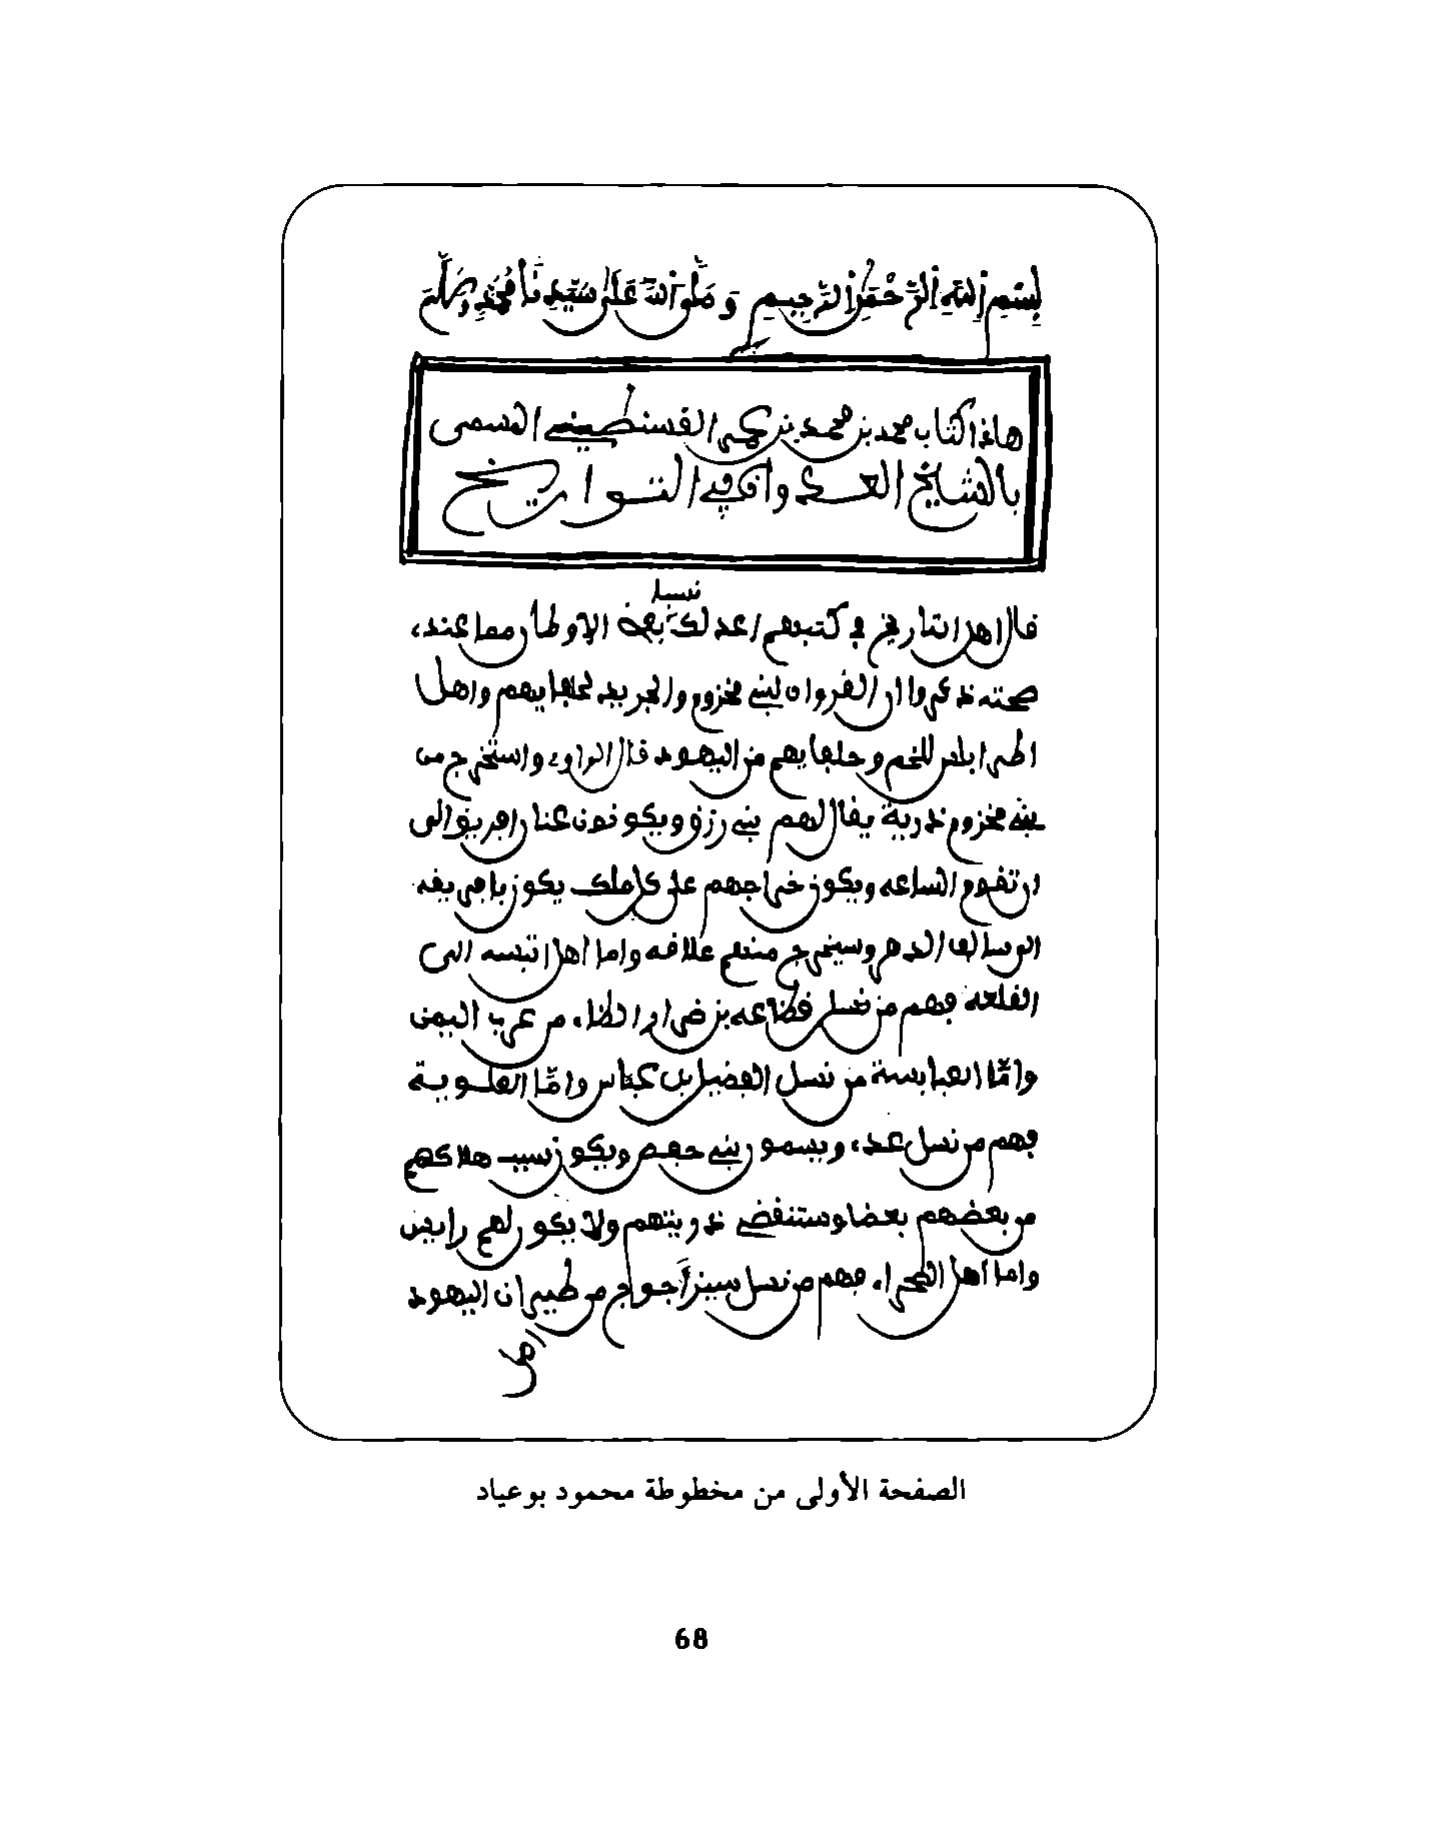 بسم الله الرحمن الرحيم وصلى الله على سيدنا محمد وسلم
هاذا الكتاب محمد بن محمد بن القسنطيني المسمى
بالشايخ العدواني في التواريخ
نسبا
قال اهل التاريخ في كتبهم لك بعض الاوطار مما عنده
صحته ذكروا ان القروان لبني مخزوم والجريد لحلفايهم واهل
اطرابلس للخم وحلفايهم من اليهود قال الراوي واستخرج من
بني مخزوم ذرية يقال لهم بني رزق ويكونون عنا الى
ان تقوم الساعه ويكون خراجهم على كل ملك يكون بافريقه
الى سالف الدهر وسيخرج منهم علاقه واما اهل تبسه الى
القلعه فهم من نسل قضاعه بن ضرار من عرب اليمن
وامّا العبابسة من نسل الفضيل بن عباس وامّا العلوية
فهم من نسل عده ويسمون بني حفص ويكون سبب هلاكهم
من بعضهم بعضا وستنقضي ذريتهم ولا يكون لهم رايس
واما اهل الصحراء فهم من نسل من طيران اليهود
الصفحة الأولى من مخطوطة محمود بوعياد
68